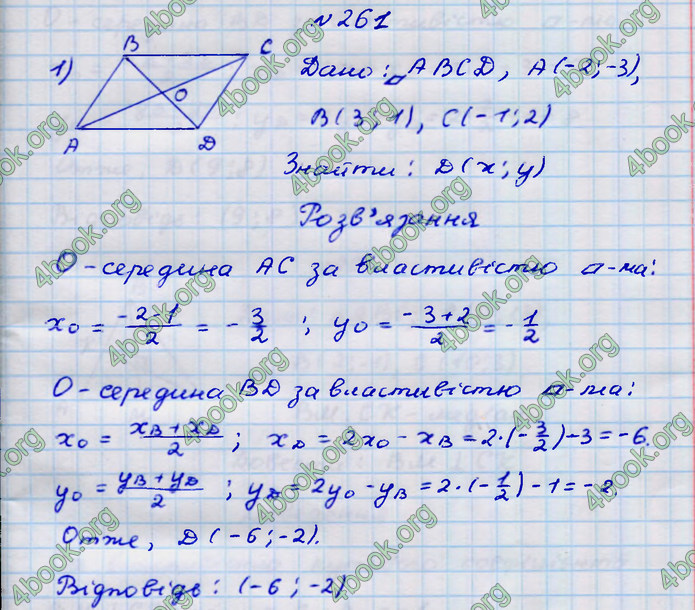 №261
1)
B C
O
A D
Дано: ▱ ABCD, A(-2;-3),
B(3;1), C(-1;2)
Знайти: D(x;y)
Розв'язання
O - середина AC за властивістю п-ма:
x₀ = (-2-1)/2 = -3/2 ; y₀ = (-3+2)/2 = -1/2
O - середина BD за властивістю п-ма:
x₀ = (x_B + x_D)/2 ; x_D = 2x₀ - x_B = 2·(-3/2)-3 = -6.
y₀ = (y_B + y_D)/2 ; y_D = 2y₀ - y_B = 2·(-1/2)-1 = -2.
Отже, D(-6;-2).
Відповідь: (-6;-2)
4book.org